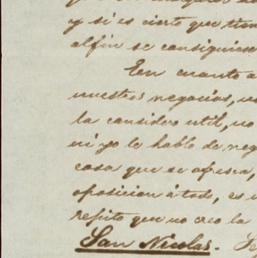 y si es cierto que
al fin se consiguiese
En cuanto a
nuestros negocios,
la considero util, no
ni yo le hablo de
cosa que se ofresca,
oposicion á todo, es
repito que no creo la
San Nicolas.